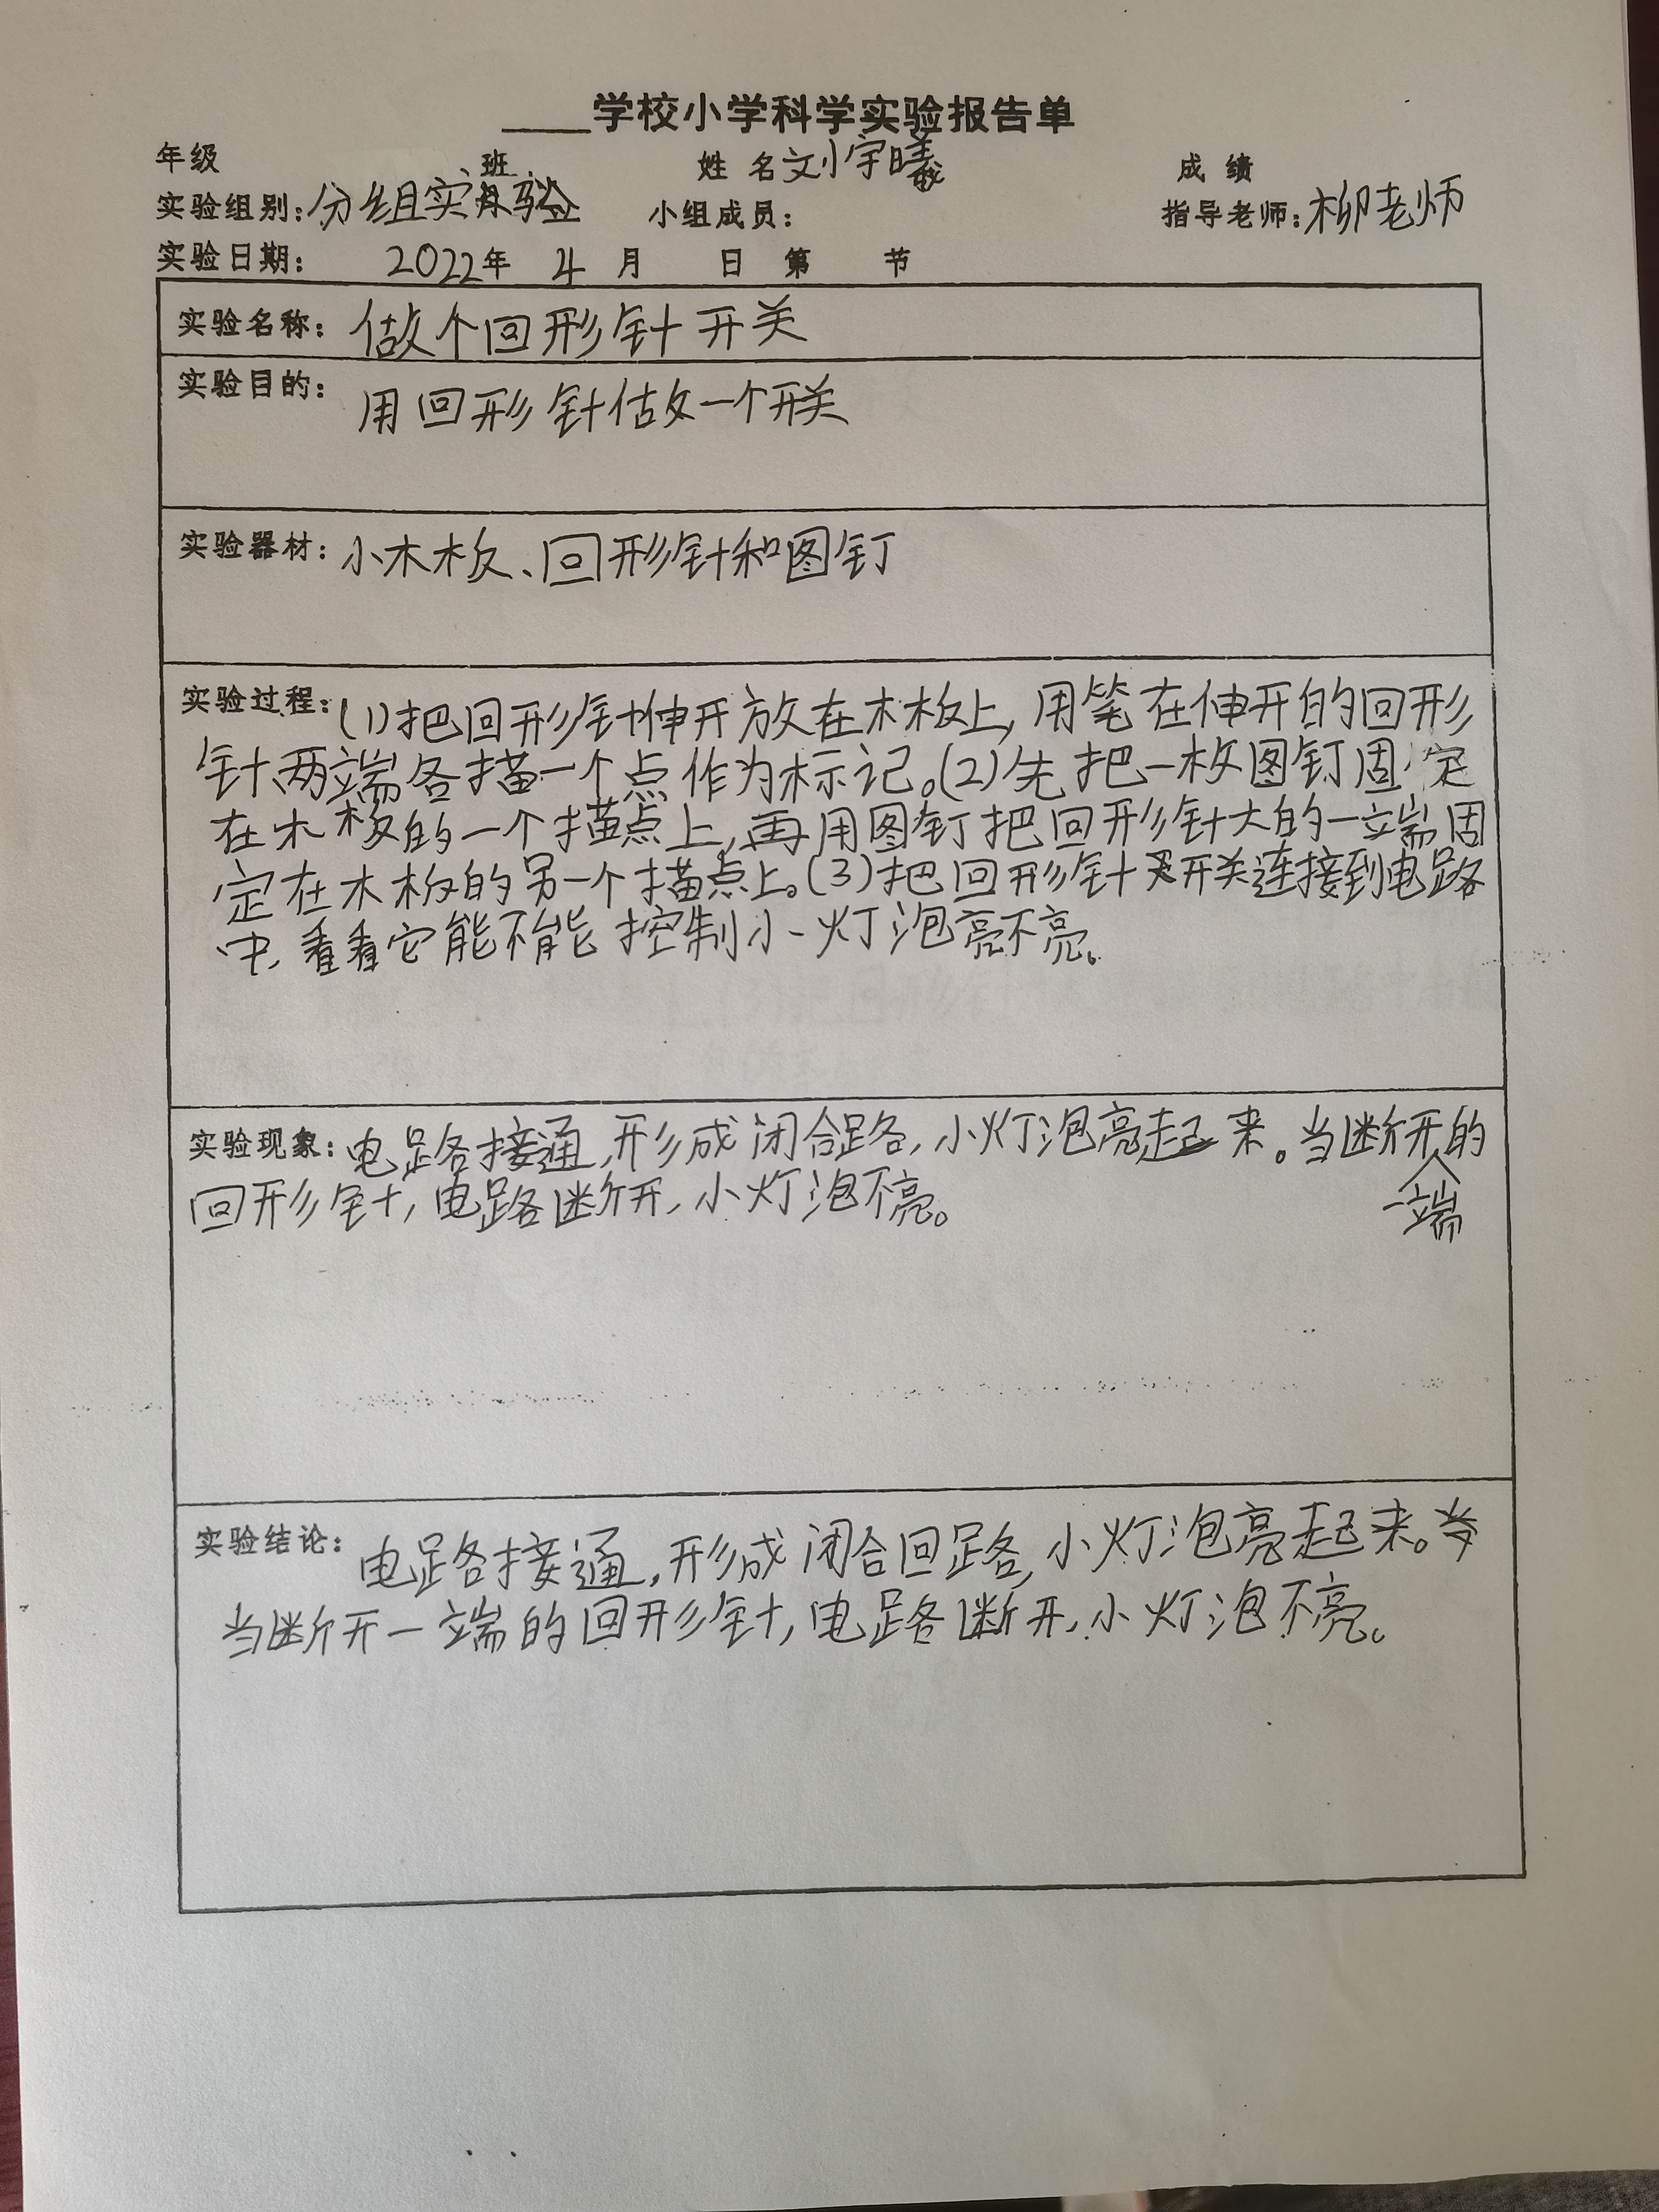 ____学校小学科学实验报告单
年级 班 姓名 文小宇曦 成绩
实验组别：分组实验 小组成员： 指导老师：柳老师
实验日期： 2022年 4 月 日 第 节
实验名称：做个回形针开关
实验目的：用回形针做一个开关
实验器材：小木板、回形针和图钉
实验过程：(1)把回形针伸开放在木板上,用笔在伸开的回形
针两端各描一个点作为标记。(2)先把一枚图钉固定
在木板的一个描点上,再用图钉把回形针大的一端固
定在木板的另一个描点上。(3)把回形针开关连接到电路
中,看看它能不能控制小灯泡亮不亮。
实验现象：电路接通,形成闭合路,小灯泡亮起来。当断开一端的
回形针,电路断开,小灯泡不亮。
实验结论：电路接通,形成闭合回路,小灯泡亮起来。
当断开一端的回形针,电路断开,小灯泡不亮。